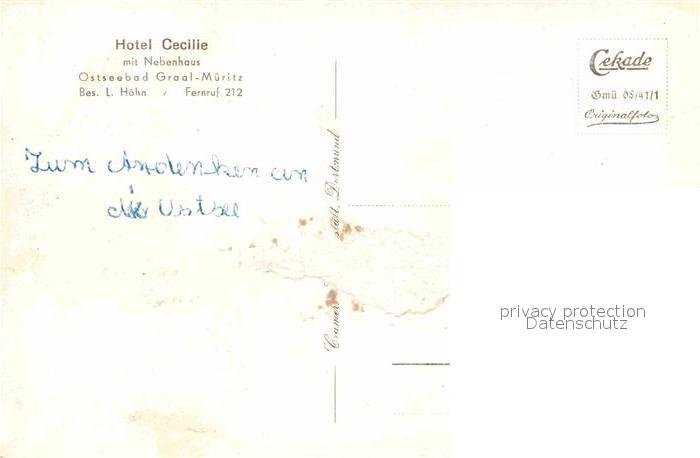 Hotel Cecilie
mit Nebenhaus
Ostseebad Graal-Müritz
Bes. L. Höhn / Fernruf 212
Zum Andenken an
die Ostsee
Cramers
stalt, Dortmund
Cekade
Gmü 08/41/1
Originalfoto
privacy protection
Datenschutz